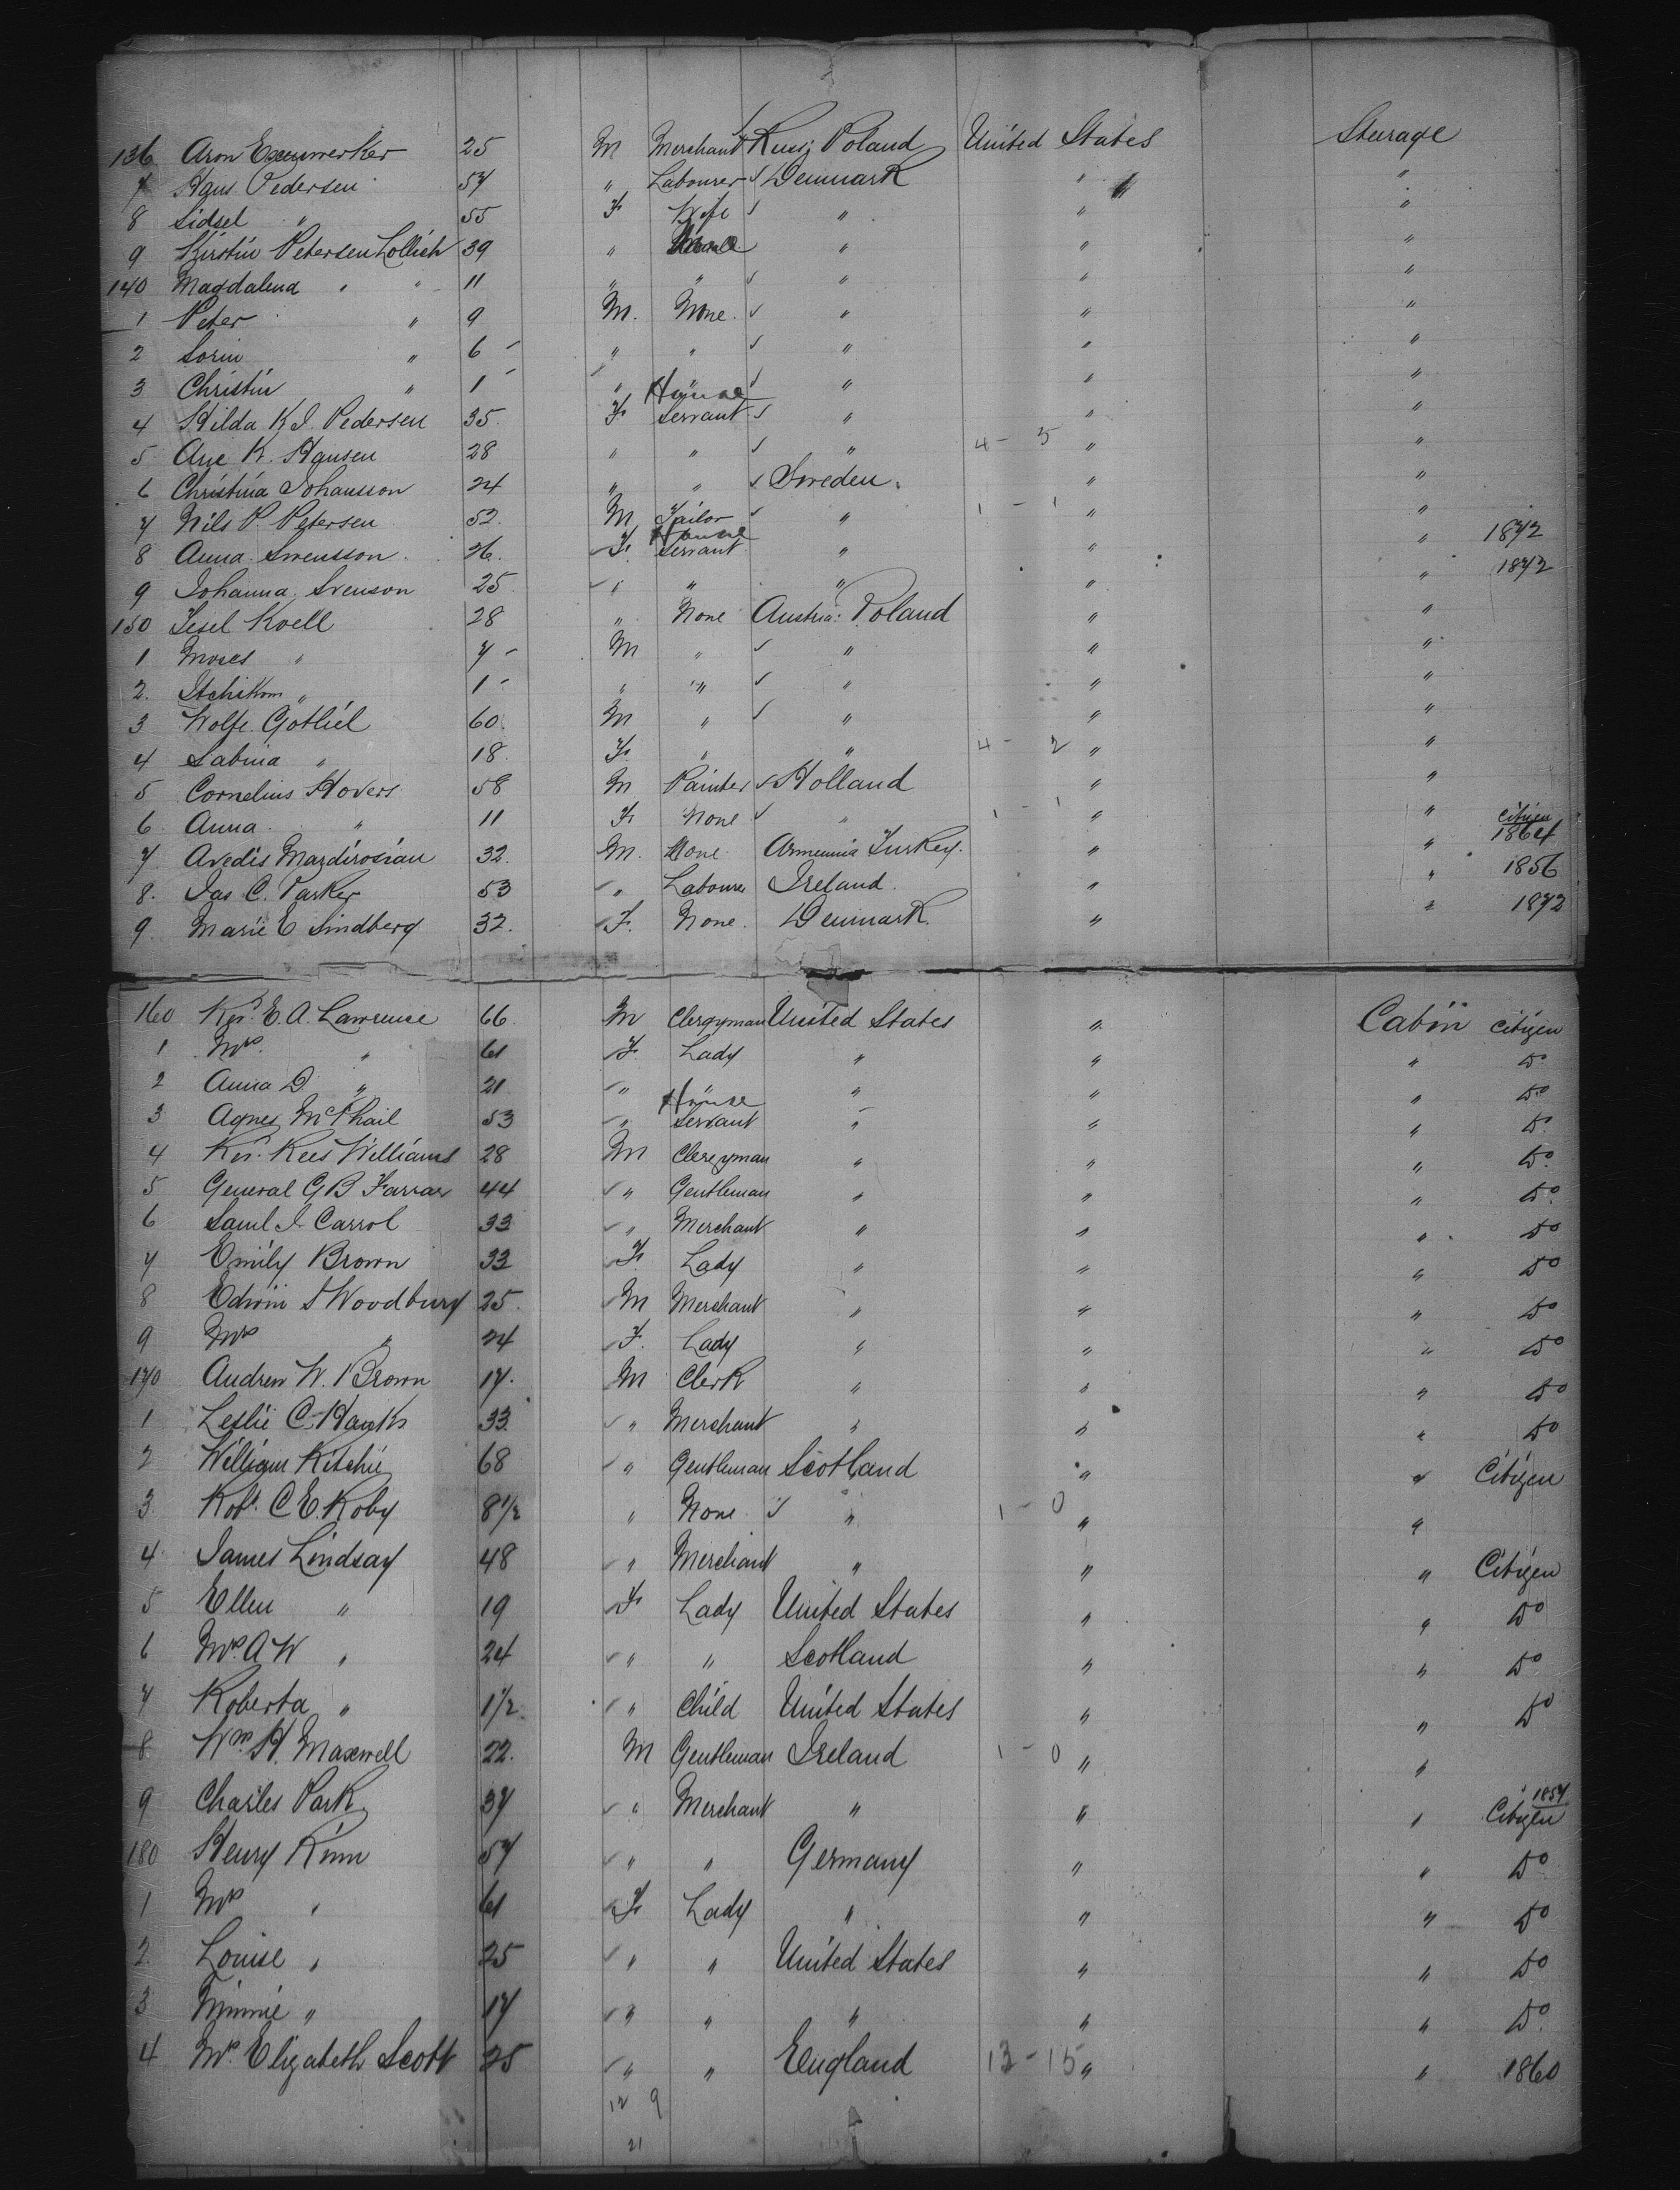 136 Aron 25 M Merchant Russ: Poland United States Steurage
7 Hans Pedersen 57 " Labourer √ Denmark " "
8 Sidsel " 55 F Wife √ " " "
9 Kirstin Petersen Lollich 39 " None " " "
140 Magdalena " " 11 " " √ " " "
1 Peter " 9 M. None. √ " " "
2 Sorin " 6 - " " √ " " "
3 Christin " 1 - " " √ " " "
4 Hilda K.J. Pedersen 35. F House Servant √ " " "
5 Ane K. Hansen 28 " " √ " 4 - 5 " "
6 Christina Johansson 24 " " √ Sweden. " "
7 Nils P. Petersen 52. M Tailor √ " 1 - 1 " "
8 Anna Swensson. 26. F. House Servant " " " 1872
9 Johanna Svenson 25. " " " " " 1872
150 Jesel Koell 28 " None Austria: Poland " "
1 Moses " 7 - M " √ " " "
2. Itchikom " 1 - " " √ " " "
3 Wolfe Gotliel 60. M " √ " " "
4 Sabina " 18. F. " " 4 - 2 " "
5 Cornelius Hovers 58 M Painter √ Holland " "
6 Anna " 11 F. None √ " 1 - 1 " "
7 Avedis Mardirosian 32. M. None Armennia Turkey. " " Citizen 1864
8. Jas C. Parker 53 " Labourer Ireland. " " 1856
9 Marie E Lindberg 32. F. None. Denmark. " " 1872
160 Revd. E. A. Lawrence 66 M Clergyman United States " Cabin Citizen
1 Mrs. " 61 F. Lady " " " Do
2 Anna D. " 21 " " " " Do
3 Agnes McPhail 53 " House Servant " " " Do
4 Revd. Rees Williams 28 M Clergyman " " " Do
5 General G B Farrar 44 " Gentleman " " " Do
6 Saml J. Carrol 33 " Merchant " " " Do
7 Emily Brown 33 F. Lady " " " Do
8 Edwin S Woodbury 25. M Merchant " " " Do
9 Mrs " 24 F. Lady " " " Do
170 Andrew W. Brown 17. M Clerk " " " Do
1 Leslie C. Hanks 33. " Merchant " " " Do
2 William Ritchie 68 " Gentleman Scotland " " Citizen
3 Robt. C E. Roby 8 1/2 " None √ " 1 - 0 " "
4 James Lindsay 48 " Merchant " " " Citizen
5 Ellen " 19 F Lady United States " " Do
6 Mrs. A W " 24 " " Scotland " " Do
7 Roberta " 1 1/2. " Child United States " " Do
8 Wm. H. Maxwell 22. M Gentleman Ireland 1 - 0 " "
9 Charles Park 37 " Merchant " " " 1857 Citizen
180 Henry Rinn 57 " " Germany " " Do
1 Mrs " 61 F Lady " " " Do
2 Louise " 25 " " United States " " Do
3 Minnie " 17 " " " " " Do
4 Mrs. Elizabeth Scott 25 " " England 13 - 15 " " 1860
12 9
21